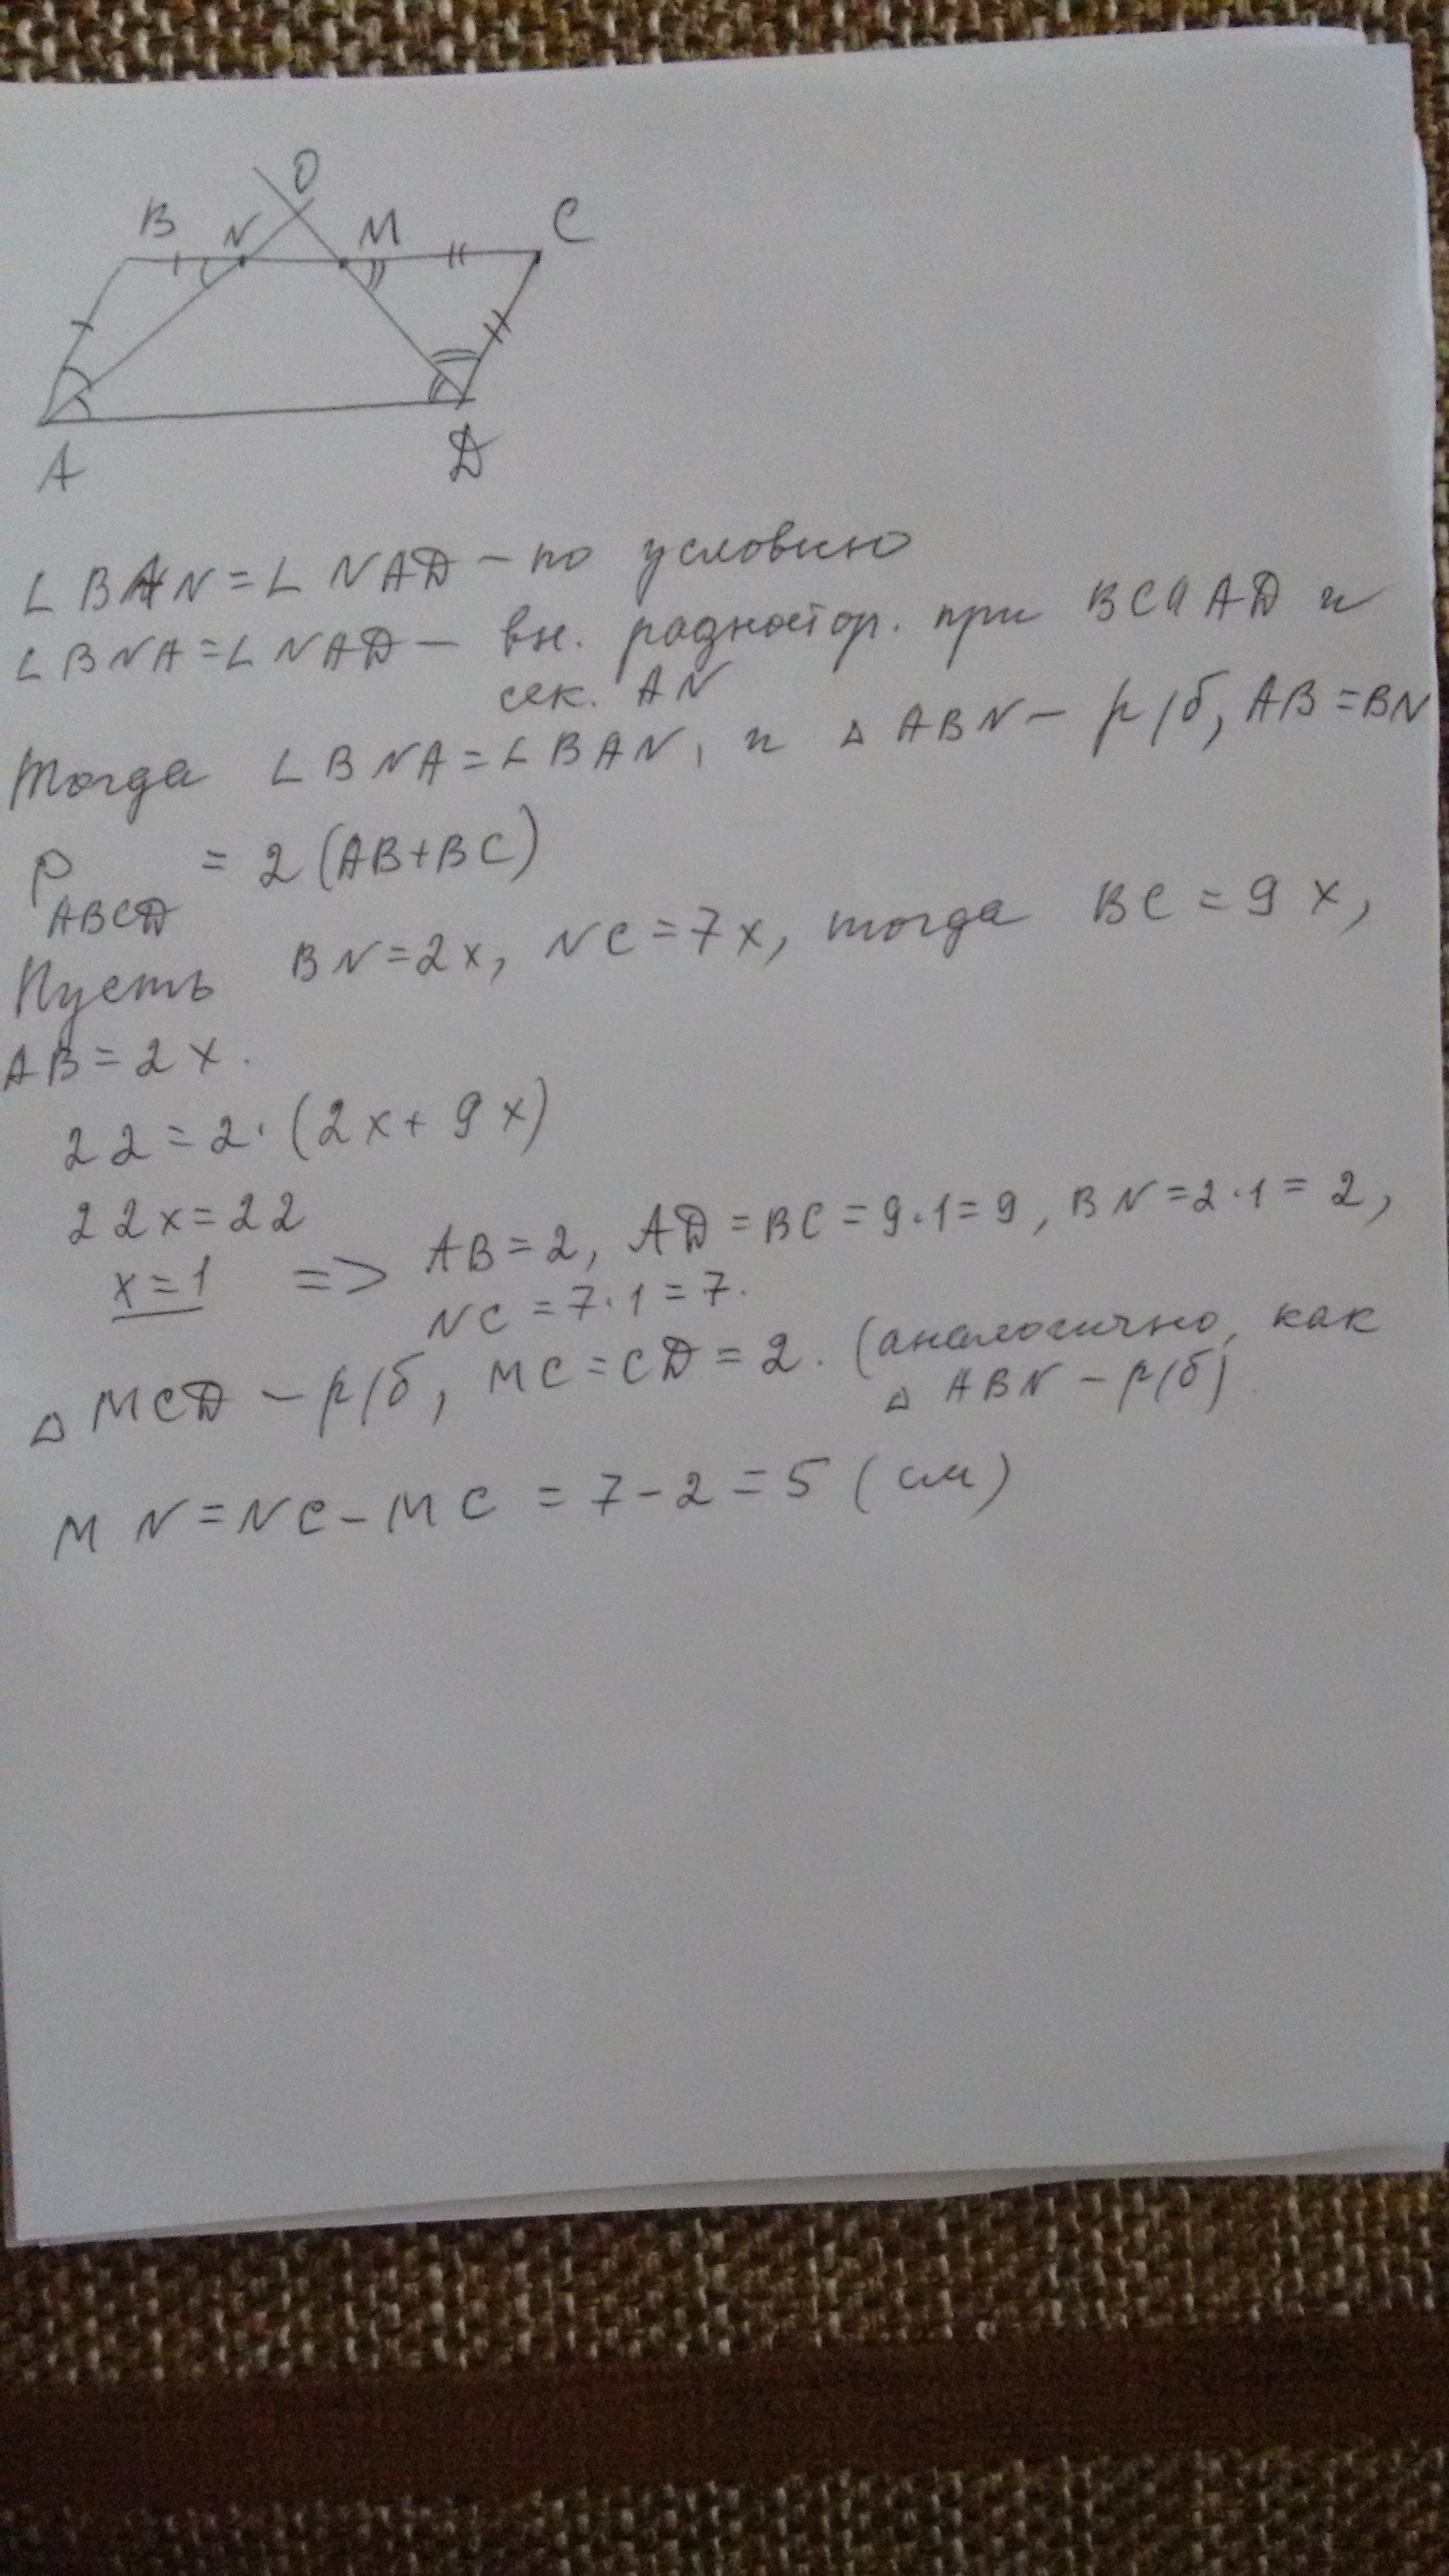 O
B N M C
A D
∠BAN=∠NAD – по условию
∠BNA=∠NAD – вн. разностор. при BC || AD и
сек. AN
Тогда ∠BNA=∠BAN, и △ABN – р/б, AB=BN
P ABCD = 2(AB+BC)
Пусть BN=2x, NC=7x, тогда BC=9x,
AB=2x.
22=2·(2x+9x)
22x=22
x=1 => AB=2, AD=BC=9·1=9, BN=2·1=2,
NC=7·1=7.
△MCD – р/б, MC=CD=2. (аналогично, как
△ABN – р/б)
MN=NC-MC=7-2=5 (см)